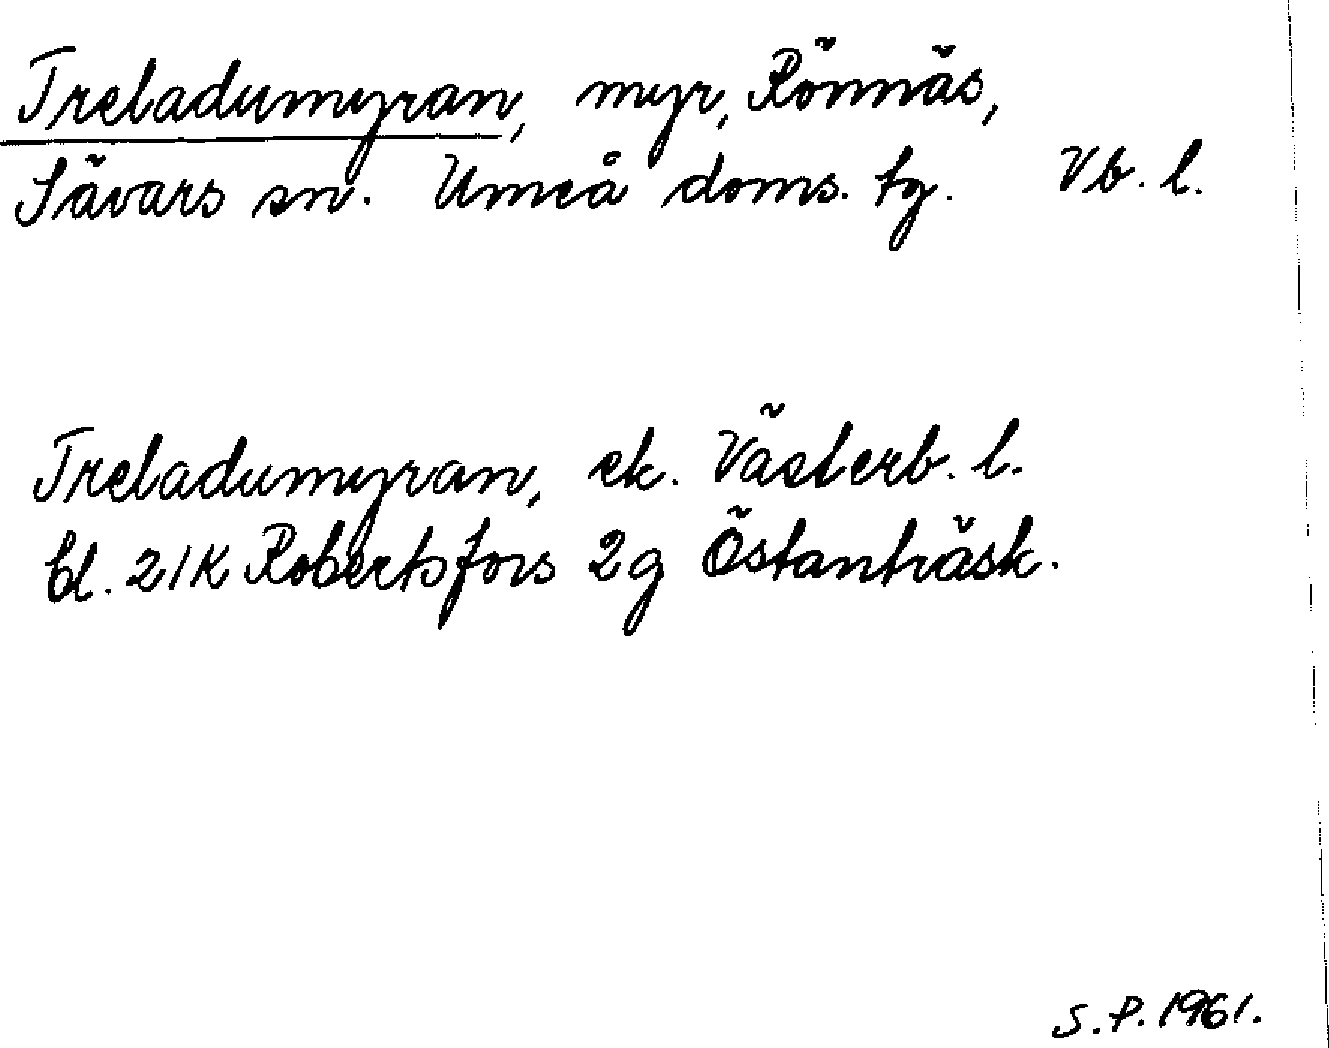 Treladumyran, myr, Rönnäs,
Sävars sn. Umeå doms. tg. Vb. l.
Treladumyran, ek. Västerb. l.
bl. 21K Robertsfors 2g Östanträsk.
S.P. 1961.